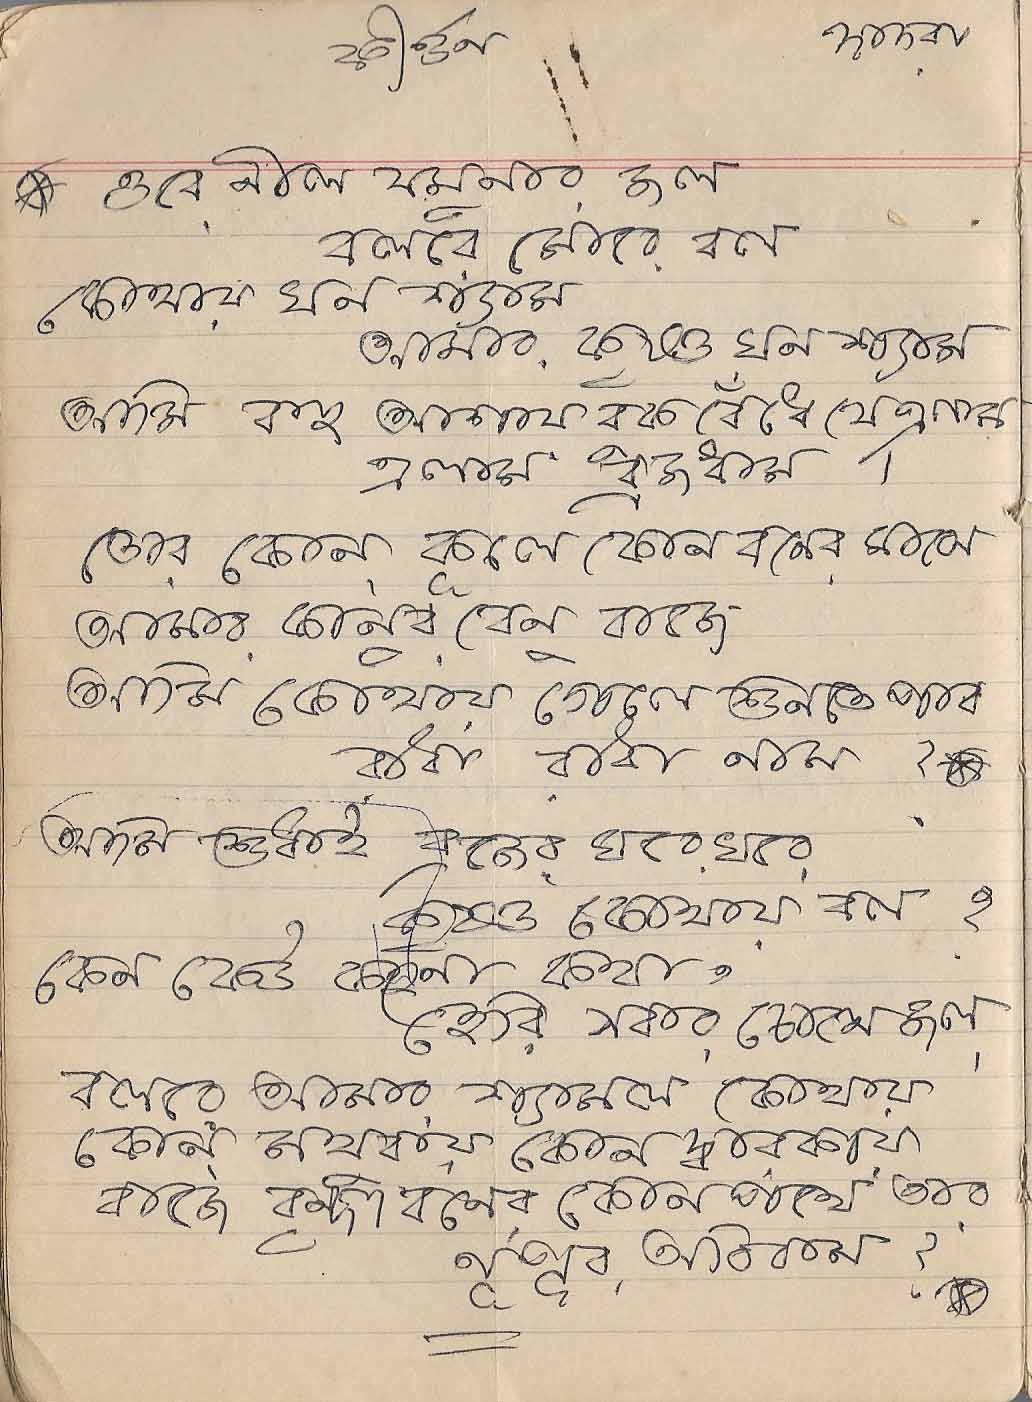 কীর্ত্তন দাদরা
ওরে নীল যমুনার জল
বলরে মোরে বল
কোথায় ঘন শ্যাম
আমার কৃষ্ণ ঘন শ্যাম
আমি বহু আশায় বুক বেঁধে যে এলাম
এলাম ব্রজধাম ।
তোর কোন্ কূলে কোন বনের মাঝে
আমার কানুর বেনু বাজে
আমি কোথায় গেলে শুনতে পাব
রাধা রাধা নাম ?
আমি শুধাই ব্রজের ঘরে ঘরে
কৃষ্ণ কোথায় বল ?
কেন কেউ কহেনা কথা,
হেরি সবার চোখে জল,
বলরে আমার শ্যামল কোথায়
কোন্ মথুরায় কোন দ্বারকায়
বাজে বৃন্দাবনের কোন পথে তার
নূপুর অবিরাম ?